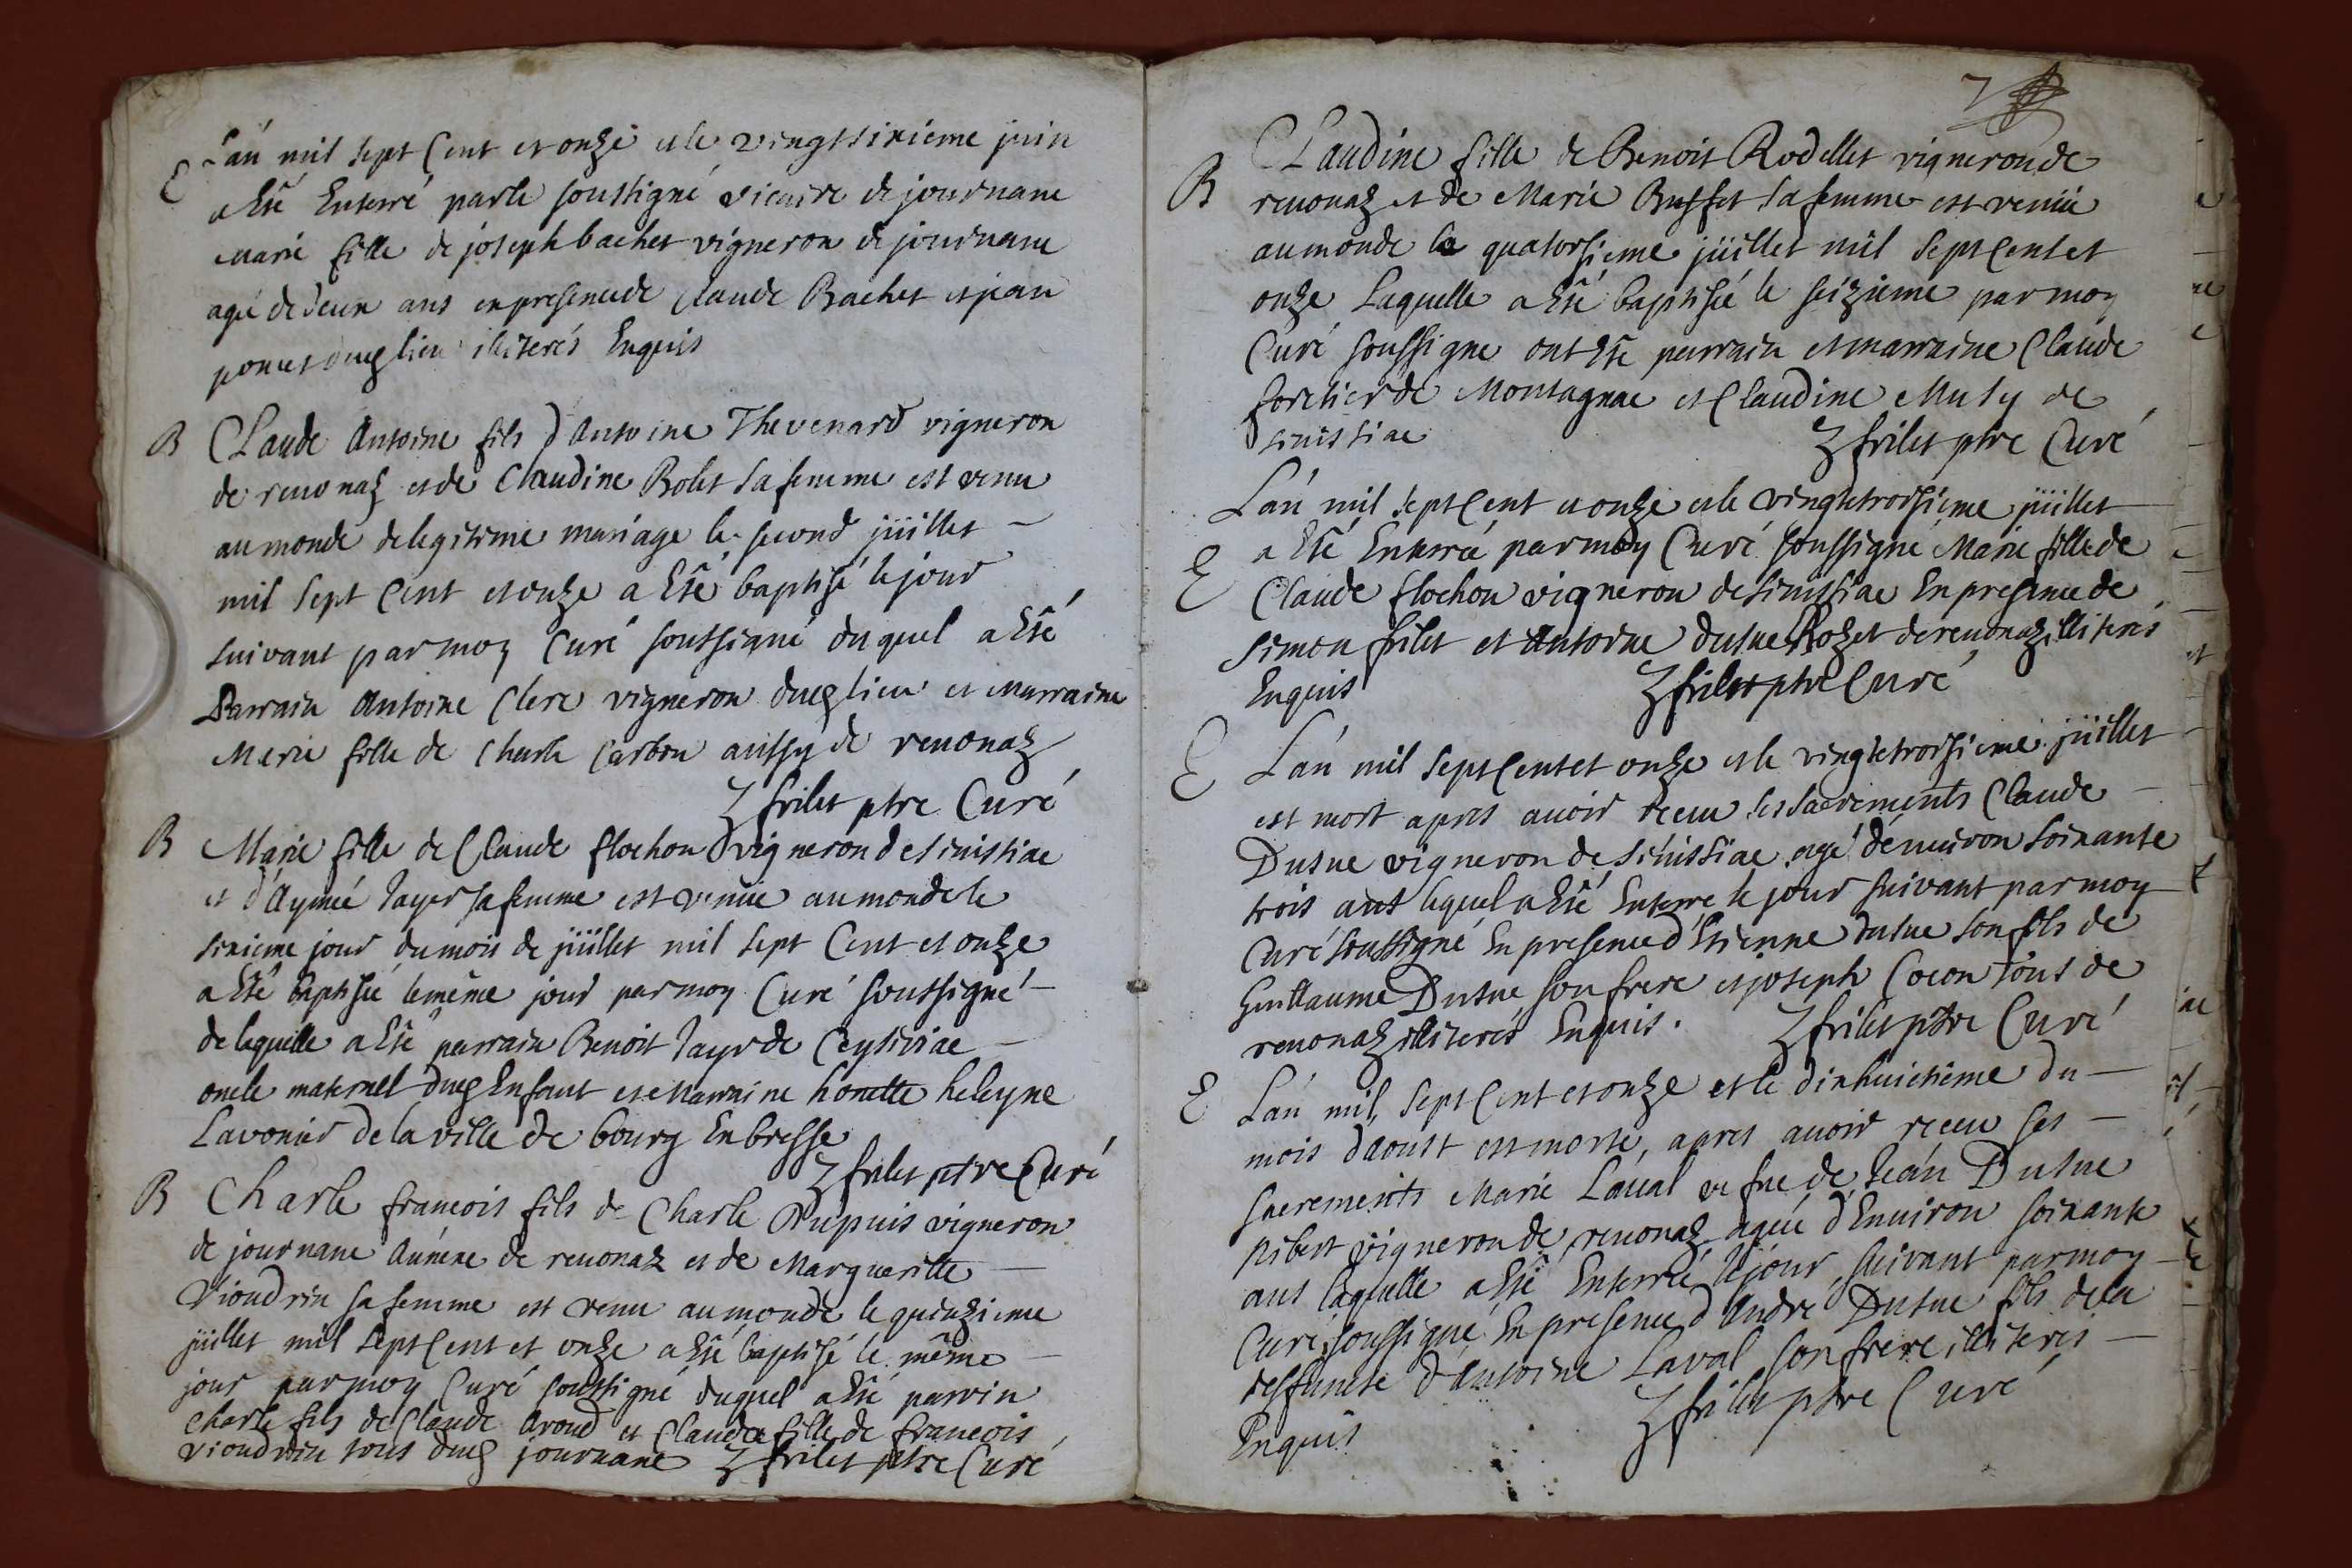 E L'an mil sept Cent et onze et le vingtsixieme juin
a Eté Enterré par le soussigné vicaire de journane
marie fille de joseph bachet vigneron de journane
agé de deux ans en presence de Claude Bachet et jean
ponet dud lieu illiterés Enquis
B Claude Antoine fils d'Antoine Thevenard vigneron
de reuonaz et de Claudine Bolet sa femme est venu
au monde de legitime mariage le second juillet
mil sept Cent et onze a Eté baptisé le jour
suivant par moy Curé soussigné duquel a Eté
Parrain Antoine Clerc vigneron dud lieu et marraine
Marie fille de Charle Carbon aussy de reuonaz
frilet ptre Curé
B Marie fille de Claude flochon vigneron de simissiac
et d'Aymée Jayr sa femme est venüe au monde le
sixieme jour du mois de juillet mil sept Cent et onze
a Eté baptisée le même jour par moy Curé soussigné
de laquelle a Eté parrain Benoit Jayr de Ceysiriac
oncle maternel dud Enfant et Marraine honette heleyne
Lavonier de la ville de bourg Enbresse
frilet ptre Curé
B Charle francois fils de Charle Dupuis vigneron
de journane Annexe de reuonaz et de Margueritte
Vioudrin sa femme est venu au monde le quinzieme
juillet mil sept Cent et onze a Eté baptisé le même
jour par moy Curé soussigné duquel a Eté parrin
Charle fils de Claude Aroud et Clauda fille de francois
vioudrin tous dud journane frilet ptre Curé
7
B Claudine fille de Benoit Rodellet vigneron de
reuonaz et de Marie Buffet sa femme est venüe
au monde le quatorsieme juillet mil sept Cent et
onze Laquelle a Eté baptisée le seizieme par moy
Curé soussigne ont Eté parrain et marraine Claude
foretier de Montagnac et Claudine Muty de
simissiac frilet ptre Curé
L'an mil sept Cent et onze et le vingtetroisieme juillet
E a Eté Enterrée par moy Curé soussigné Marie fille de
Claude flochon vigneron de simissiac En presence de
Simon frilet et Antoine dutue Rozet de reuonaz illiterés
Enquis frilet ptre Curé
E L'an mil sept Cent et onze et le vingtetroisieme juillet
est mort apres auoir receu ses sacrements Claude
Dutue vigneron de simissiac agé d'enuiron soixante
trois ans lequel a Eté Enterré le jour suivant par moy
Curé soussigné En presence d'Etienne dutue son fils de
Guillaume Dutue son frere et joseph Cocon tous de
reuonaz illiterés Enquis. frilet ptre Curé
E L'an mil sept Cent et onze et le dixhuictieme du
mois d'aoust est morte, apres auoir receu ses
sacrements Marie Laual vefue de Jean Dutue
pibert vigneron de reuonaz agée d'Enuiron soixante
ans laquelle a Eté Enterrée le jour suivant par moy
Curé soussigné En presence d'André Dutue fils de la
deffuncte d'Antoine Laval son frere illiterés
Enquis frilet ptre Curé